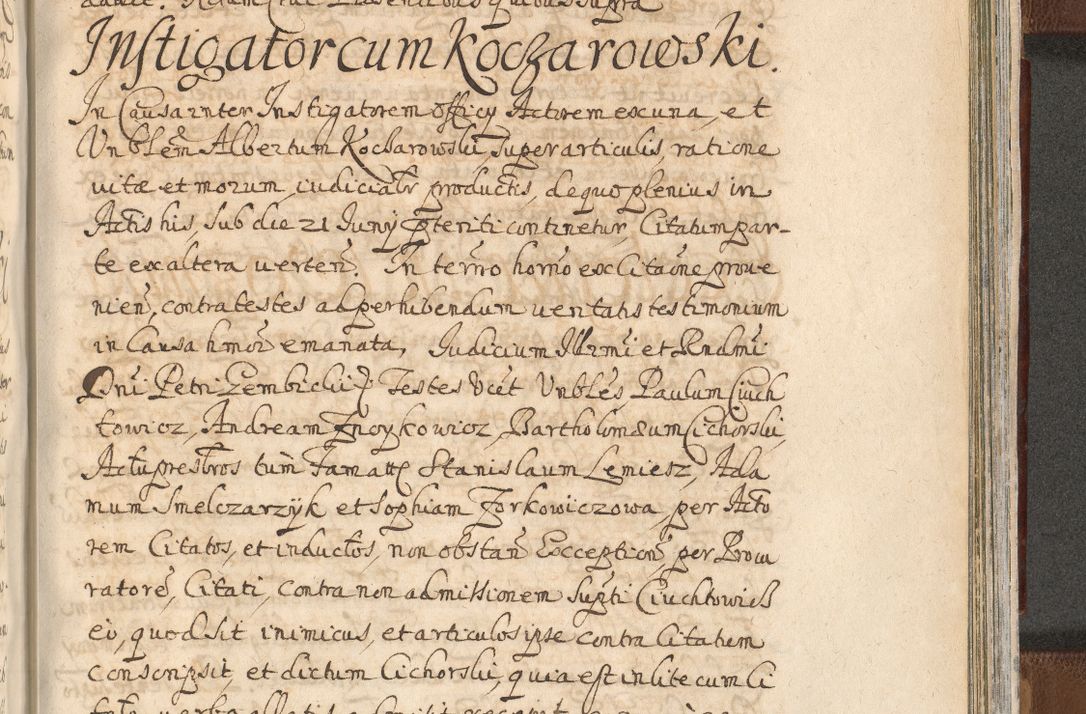 Instigator cum Koczarowski.
In Causa inter Instigatorem officy Actorem ex una, et
Vnblem Albertum Kocżarowski, super articulis, ratione
vitæ et morum, iudicialr productis, de quo plenius in
Actis his, sub die 21 Iuny pteriti continetur, Citatum par-
te ex altera verten. In termo horno ex Citaone prove
nien, contra testes ad perhibendum veritatis testimonium
in Causa hmoi emanata, Iudicium Illrmi et Rndmi
Dni Petri Gembicki E. Testes Vcet Vnbles Paulum Ciuch
towicz, Andream Znoykowicz, Bartholomæum Cichorski,
Actu presbros tum Famatt Stanislaum Lemiesz, Ada
mum Smelczarzyk et Sophiam Zorkowiczowa, per Acto
rem Citatos, et inductos, non obstan Exception per Procu
ratore, Citati, contra non admissionem supti Ciuchtowicz
eo, quod sit inimicus, et articulos ipse contra Citatum
conscripsit, et dictum Cichorski, quia est in lite cum Ci